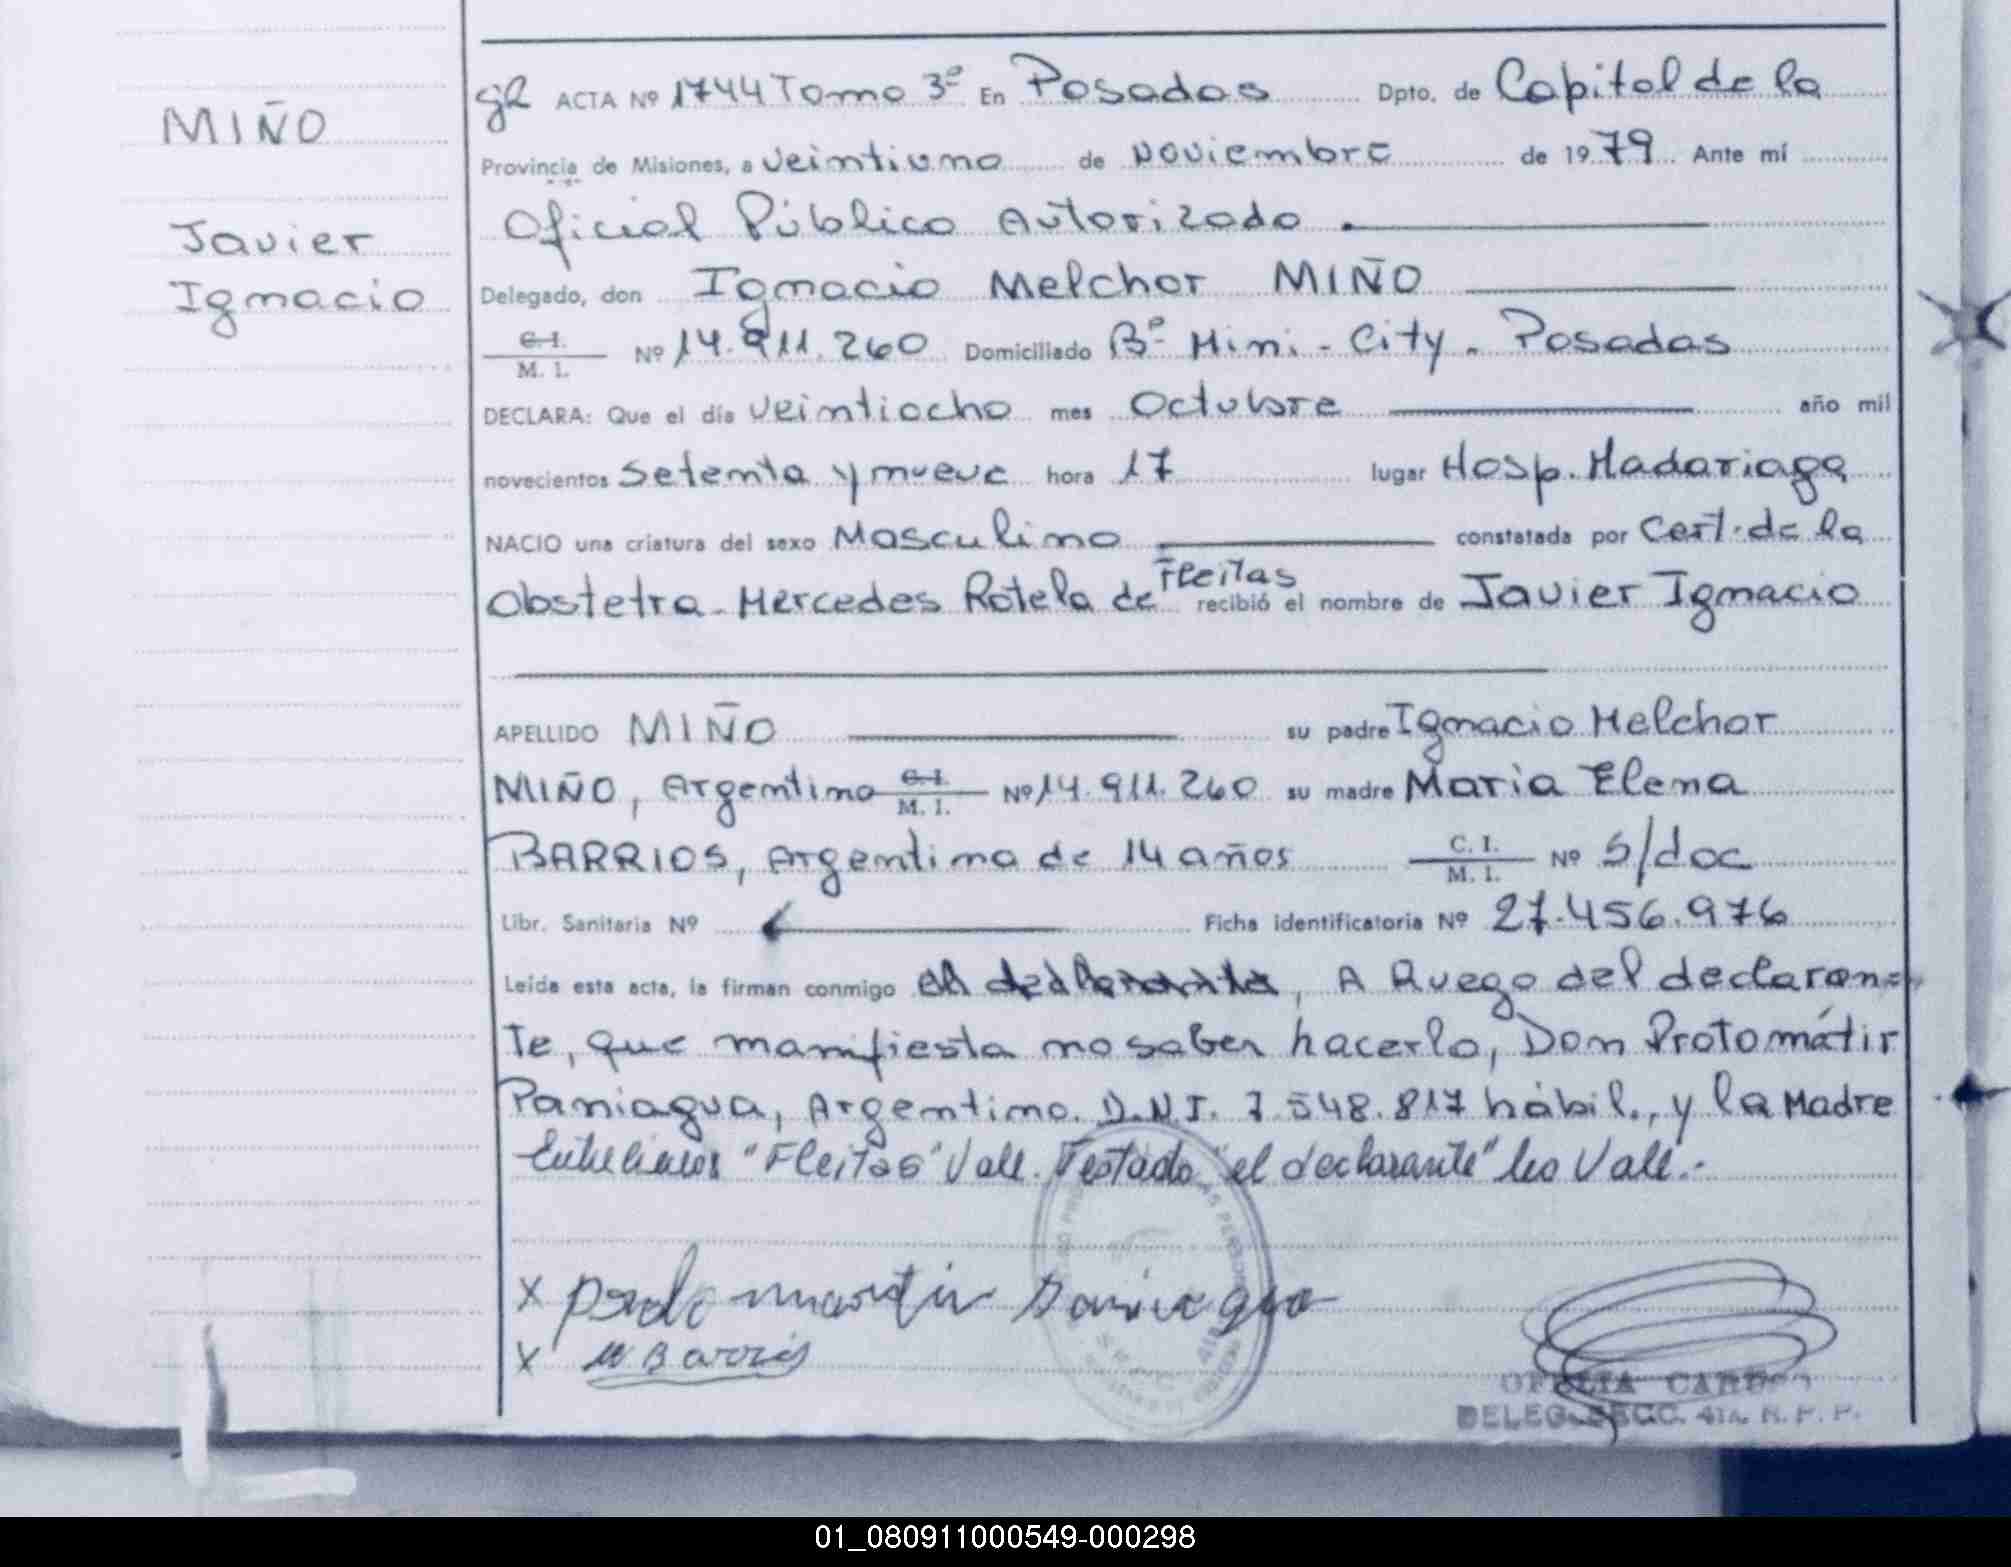 MIÑO
Javier
Ignacio
ACTA Nº 1744 Tomo 3º En Posadas Dpto. de Capital de la
Provincia de Misiones, a veintiuno de Noviembre de 1979 Ante mí
Oficial Público Autorizado
Delegado, don Ignacio Melchor MIÑO
C. I. M. I. Nº 14.911.260 Domiciliado Bº Mini-City. Posadas
DECLARA: Que el día veintiocho mes Octubre año mil
novecientos setenta y nueve hora 17 lugar Hosp. Madariaga
NACIO una criatura del sexo Masculino constatada por Cert. de la
Obstetra. Mercedes Rotela de Fleitas recibió el nombre de Javier Ignacio
APELLIDO MIÑO su padre Ignacio Melchor
MIÑO, Argentino C. I. M. I. Nº 14.911.260 su madre Maria Elena
BARRIOS, Argentina de 14 años C. I. M. I. Nº S/doc
Libr. Sanitaria Nº Ficha identificatoria Nº 27.456.976
Leída esta acta, la firman conmigo el declarante, A Ruego del declaran=
te, que manifiesta no saber hacerlo, Don Protomártir
Paniagua, Argentino. D.N.I. 7.548.817 hábil., y la Madre
Entrelineas "Fleitas" Vale. Testado "el declarante" No Vale.-
x
x M Barrios
OFELIA
DELEG. SECC. 4ta. R. P. P.
01_080911000549-000298